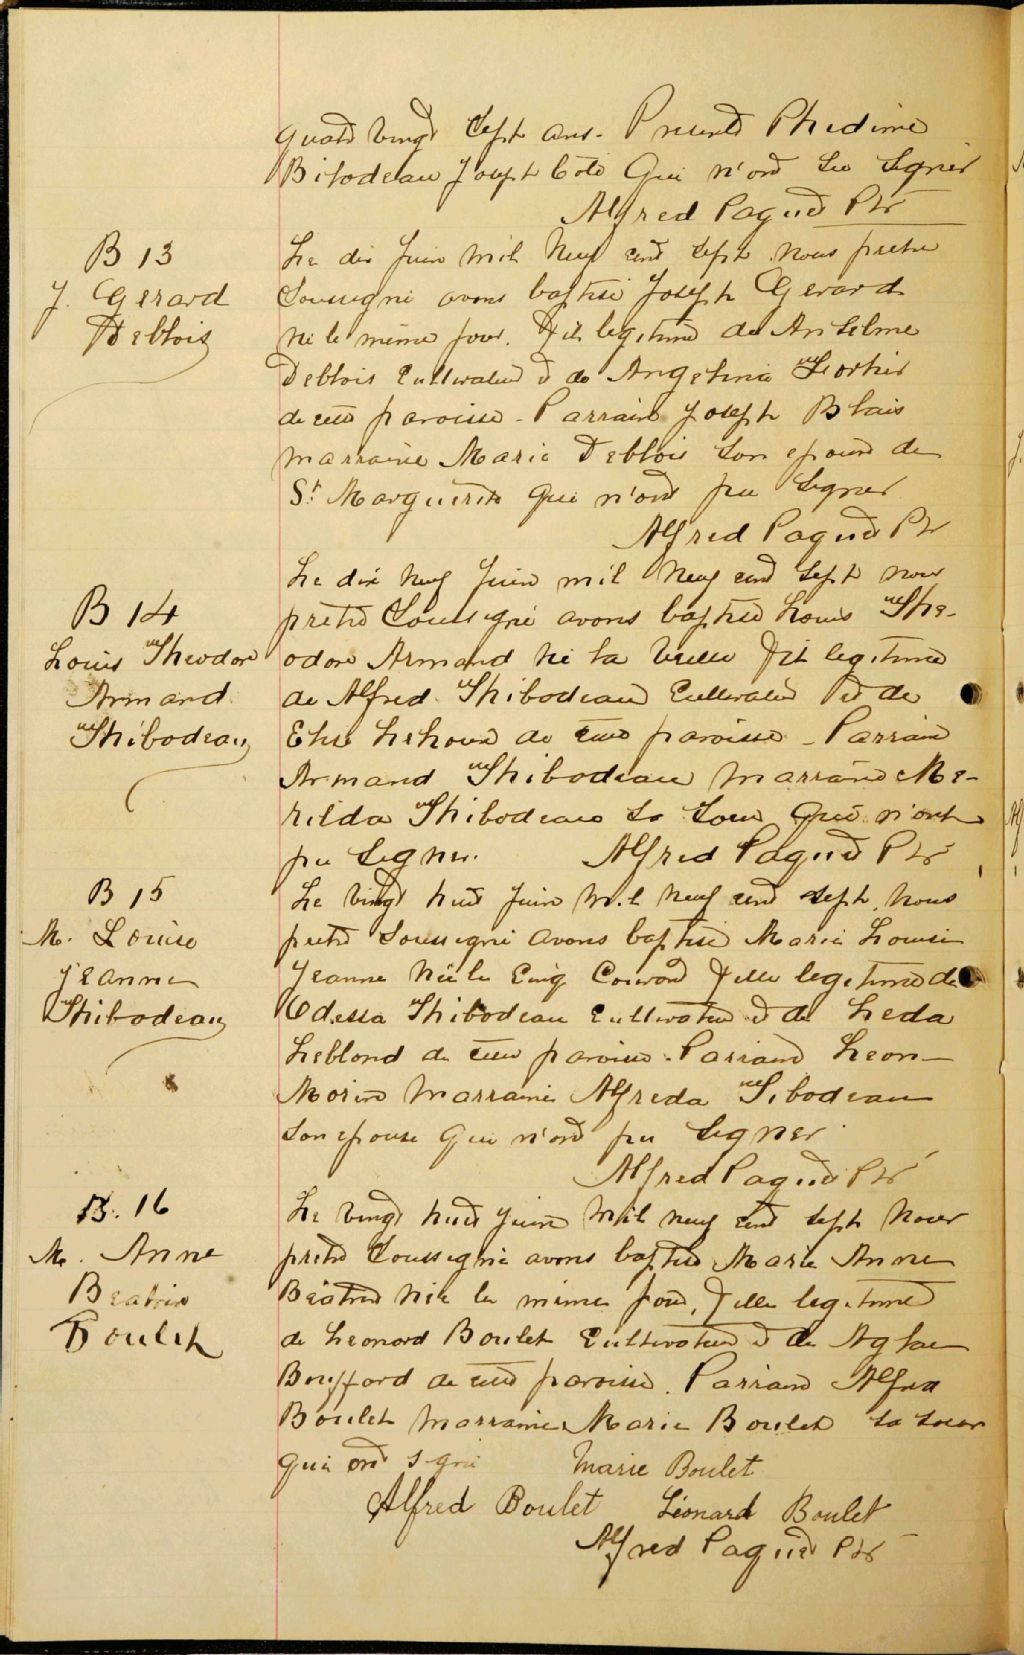 quatre vingt sept ans. Present Phedime
Bilodeau Joseph Coté Qui n'ont su signer
Alfred Paquet Ptr
B 13
J. Gerard
Deblois
Le dix Juin mil neuf cent sept nous pretre
Soussigné avons baptisé Joseph Gerard
né le même jour. Fils legitime de Anselme
Deblois Cultivateur et de Angelina Fortier
de cette paroisse - Parrain Joseph Blais
marraine Marie Deblois son epouse de
St Marguerite Qui n'ont pu signer
Alfred Paquet Ptr
B 14
Louis Theodore
Armand
Thibodeau
Le dix neuf Juin mil neuf cent sept nous
pretre Soussigné avons baptisé Louis The-
odore Armand né la veille Fils legitime
de Alfred Thibodeau Cultivateur et de
de cette paroisse - Parrain
Armand Thibodeau marraine Me-
rilda Thibodeau sa soeur Qui n'ont
pu signer. Alfred Paquet Ptr
B 15
M. Louise
Jeanne
Thibodeau
Le vingt huit Juin mil neuf cent sept nous
pretre soussigné avons baptisé Marie Louise
Jeanne née le cinq courant Fille legitime de
Odessa Thibodeau Cultivateur et de Leda
Leblond de cette paroisse. Parrain Leon
Morin marraine Alfreda Tibodeau
son epouse Qui n'ont pu signer
Alfred Paquet Ptr
B. 16
M. Anne
Beatrix
Boulet
Le vingt huit Juin mil neuf cent sept nous
pretre Soussigné avons baptisé Marie Anne
Béatrix née le même jour, Fille legitime
de Leonard Boulet Cultivateur et de Aglae
Bouffard de cette paroisse. Parrain Alfred
Boulet marraine Marie Boulet sa soeur
qui ont signé Marie Boulet
Alfred Boulet Léonard Boulet
Alfred Paquet Ptr